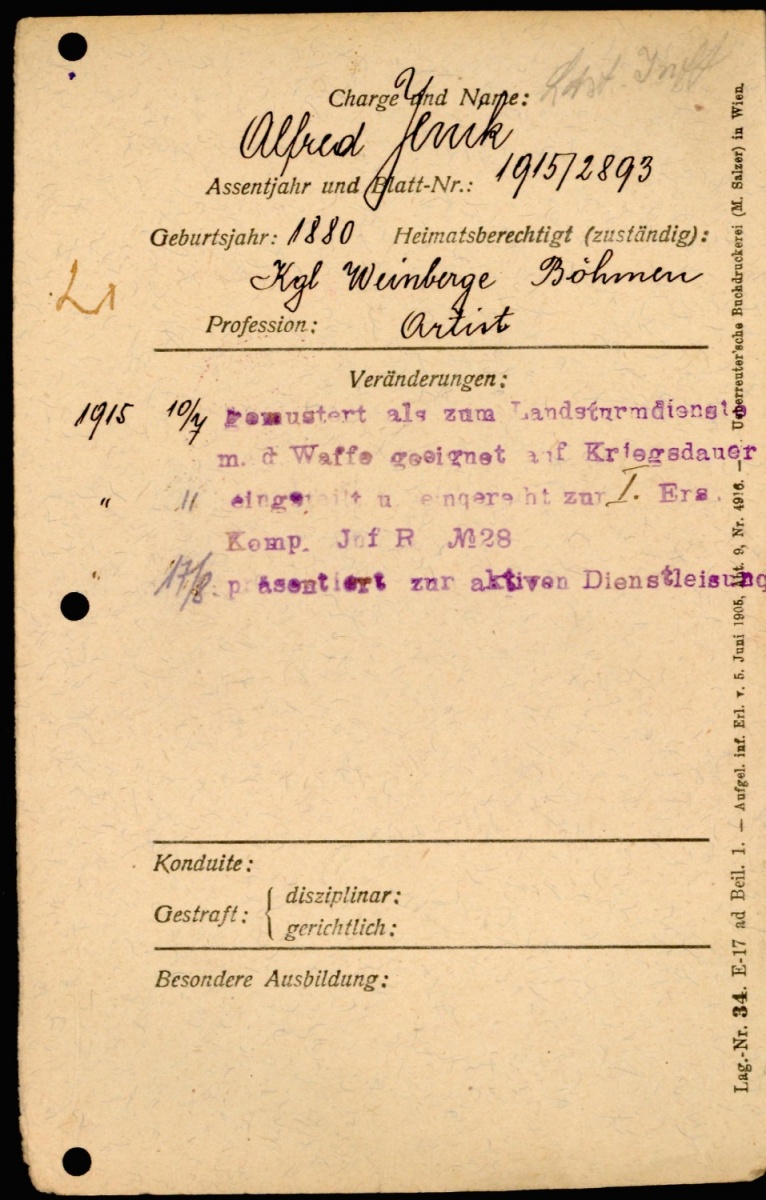 Charge und Name: Ldst. Inft
Alfred Jenik
Assentjahr und Blatt-Nr.: 1915/2893
Geburtsjahr: 1880 Heimatsberechtigt (zuständig):
Kgl Weinberge Böhmen
Profession: Artist
Veränderungen:
1915 10/7 gemustert als zum Landsturmdienste
m. d Waffe geeignet auf Kriegsdauer
" " eingeteilt u eingereiht zur I. Ers.
Komp. Inf R №28
" 17/8. präsentiert zur aktiven Dienstleisung
Konduite:
Gestraft: { disziplinar:
gerichtlich:
Besondere Ausbildung:
Lag.-Nr. 34. E-17 ad Beil. 1. — Aufgel. inf. Erl. v. 5. Juni 1905, Abt. 9, Nr. 4916. — Ueberreuter'sche Buchdruckerei (M. Salzer) in Wien.